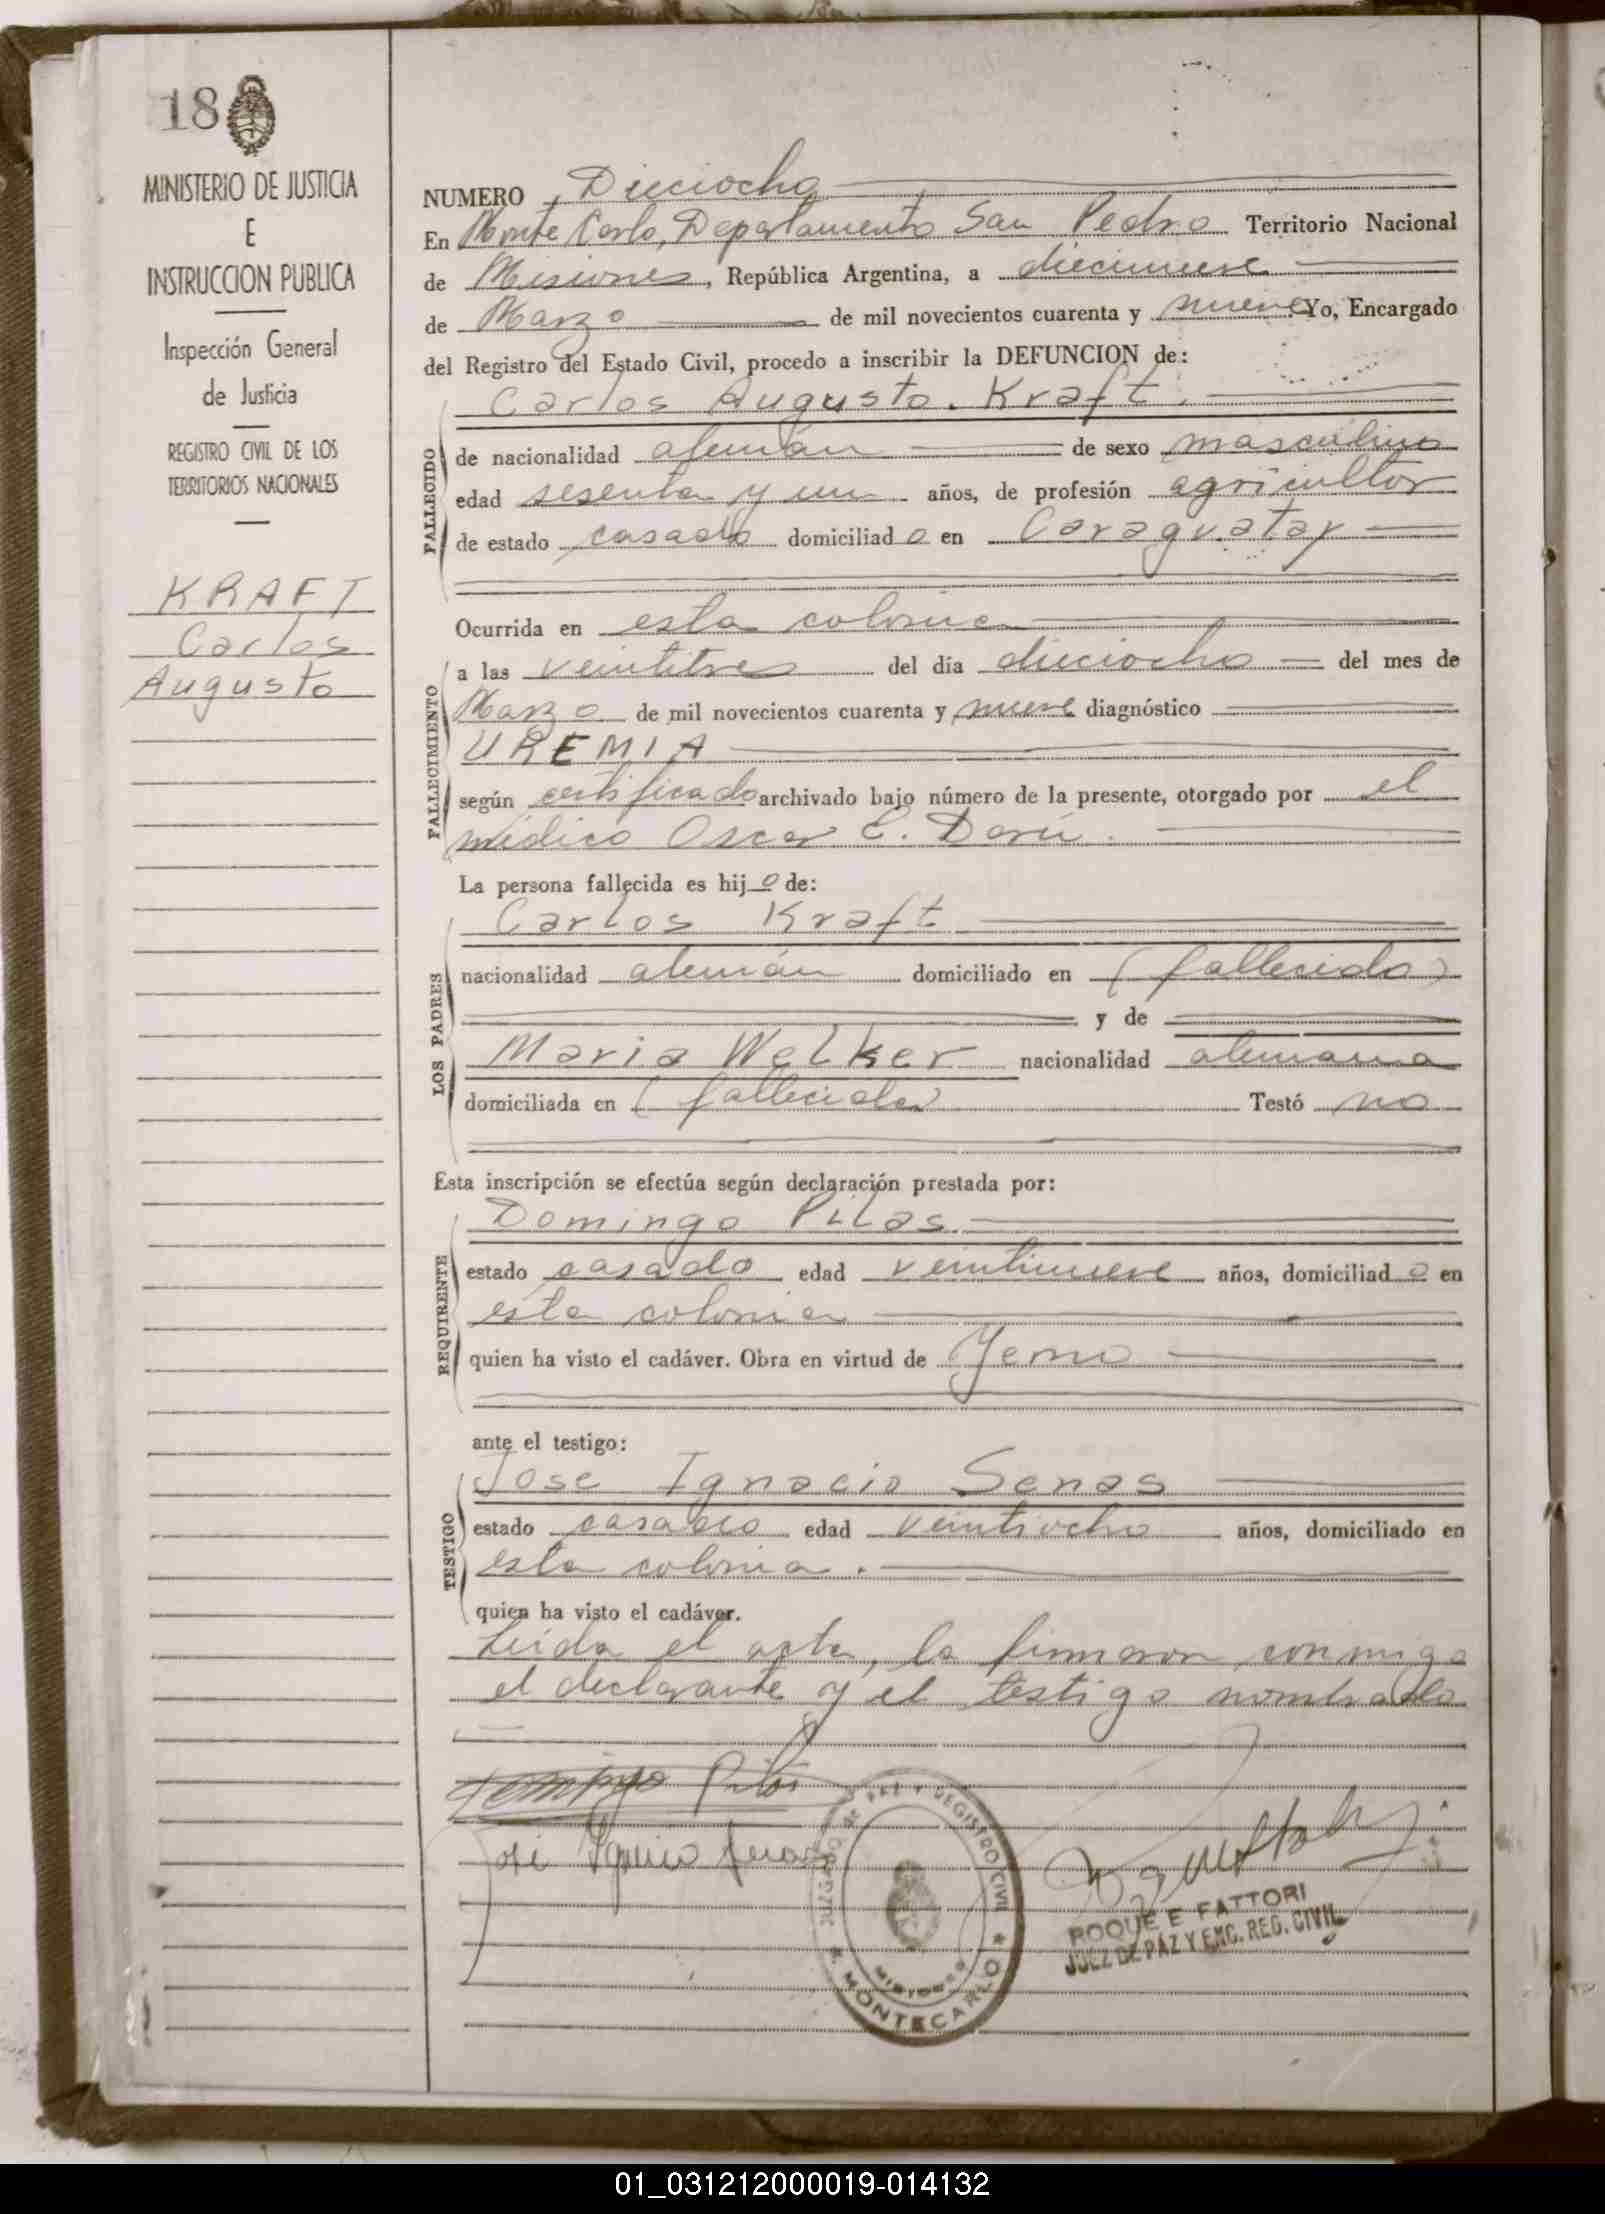 18
MINISTERIO DE JUSTICIA
E
INSTRUCCION PUBLICA
Inspección General
de Justicia
REGISTRO CIVIL DE LOS
TERRITORIOS NACIONALES
KRAFT
Carlos
Augusto
NUMERO Dieciocho
En Monte Carlo, Departamento San Pedro Territorio Nacional
de Misiones, República Argentina, a diecinueve
de Marzo de mil novecientos cuarenta y nueve Yo, Encargado
del Registro del Estado Civil, procedo a inscribir la DEFUNCION de:
FALLECIDO
Carlos Augusto. Kraft.
de nacionalidad alemán de sexo masculino
edad sesenta y un años, de profesión agricultor
de estado casado domiciliado en Caraguatay
Ocurrida en esta colonia
FALLECIMIENTO
a las veintitres del día dieciocho del mes de
Marzo de mil novecientos cuarenta y nueve diagnóstico
UREMIA
según certificado archivado bajo número de la presente, otorgado por el
médico Oscar E. Darú.
La persona fallecida es hijo de:
LOS PADRES
Carlos Kraft
nacionalidad alemán domiciliado en (fallecido)
y de
Maria Welker nacionalidad alemana
domiciliada en (fallecida) Testó no
Esta inscripción se efectúa según declaración prestada por:
REQUIRENTE
Domingo Pilas
estado casado edad veintinueve años, domiciliado en
esta colonia
quien ha visto el cadáver. Obra en virtud de Yerno
ante el testigo:
TESTIGO
Jose Ignacio Senas
estado casado edad veintiocho años, domiciliado en
esta colonia.
quien ha visto el cadáver.
Leída el acta, la firmaron conmigo
el declarante y el testigo nombrado
Domingo Pilas
José Ignacio Senas
JUZGADO DE PAZ Y REGISTRO CIVIL
MISIONES
* MONTECARLO *
ROQUE E FATTORI
JUEZ DE PAZ Y ENC. REG. CIVIL
01_031212000019-014132